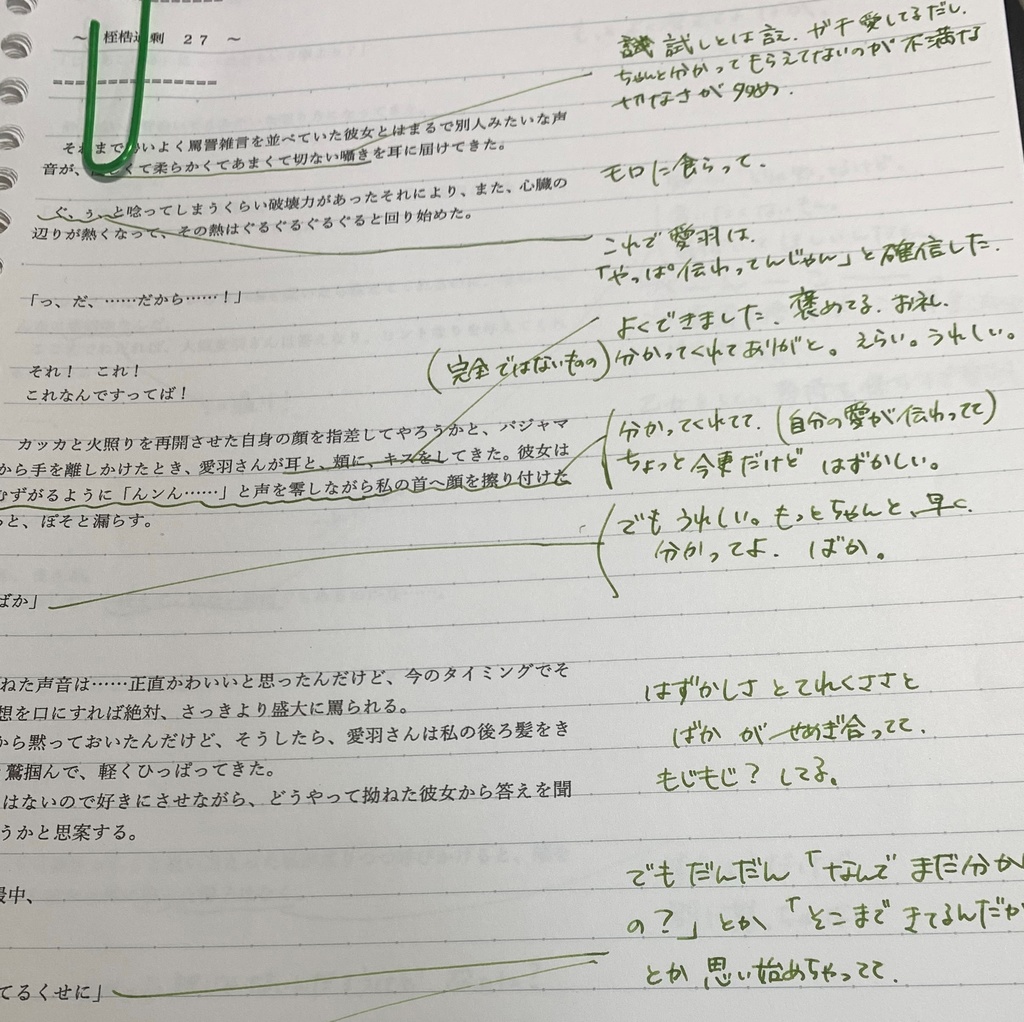 ~ 桎梏過剰 27 ~
それまで いよく罵詈雑言を並べていた彼女とはまるで別人みたいな声
音が、 くて柔らかくてあまくて切ない囁きを耳に届けてきた。
ぐ、ぅ、と唸ってしまうくらい破壊力があったそれにより、また、心臓の
辺りが熱くなって、その熱はぐるぐるぐるぐると回り始めた。
「っ、だ、……だから……！」
それ！　これ！
これなんですってば！
カッカと火照りを再開させた自身の顔を指差してやろうかと、パジャマ
から手を離しかけたとき、愛羽さんが耳と、頬に、キスをしてきた。彼女は
むずがるように「んンん……」と声を零しながら私の首へ顔を擦り付けた
っと、ぼそと漏らす。
ばか」
ねた声音は……正直かわいいと思ったんだけど、今のタイミングでそ
想を口にすれば絶対、さっきより盛大に罵られる。
から黙っておいたんだけど、そうしたら、愛羽さんは私の後ろ髪をき
鷲掴んで、軽くひっぱってきた。
はないので好きにさせながら、どうやって拗ねた彼女から答えを聞
うかと思案する。
最中、
てるくせに」
試しとは言え、ガチ愛してるだし、
ちゃんと分かってもらえてないのが不満な
切なさが多め。
モロに食らって、
これで愛羽は、
「やっぱ伝わってんじゃん」と確信した。
よくできました、褒めてる、お礼、
(完全ではないものの) 分かってくれてありがと。えらい。うれしい。
分かってくれてて、(自分の愛が伝わってて)
ちょっと今更だけど はずかしい。
でも うれしい。もっとちゃんと、早く、
分かってよ、ばか。
はずかしさ とてれくささと
ばか が せめぎ合ってて、
もじもじ？してる。
でも だんだん「なんで まだ分か
の？」とか「そこまで きてるんだか
とか 思い始めちゃってて、